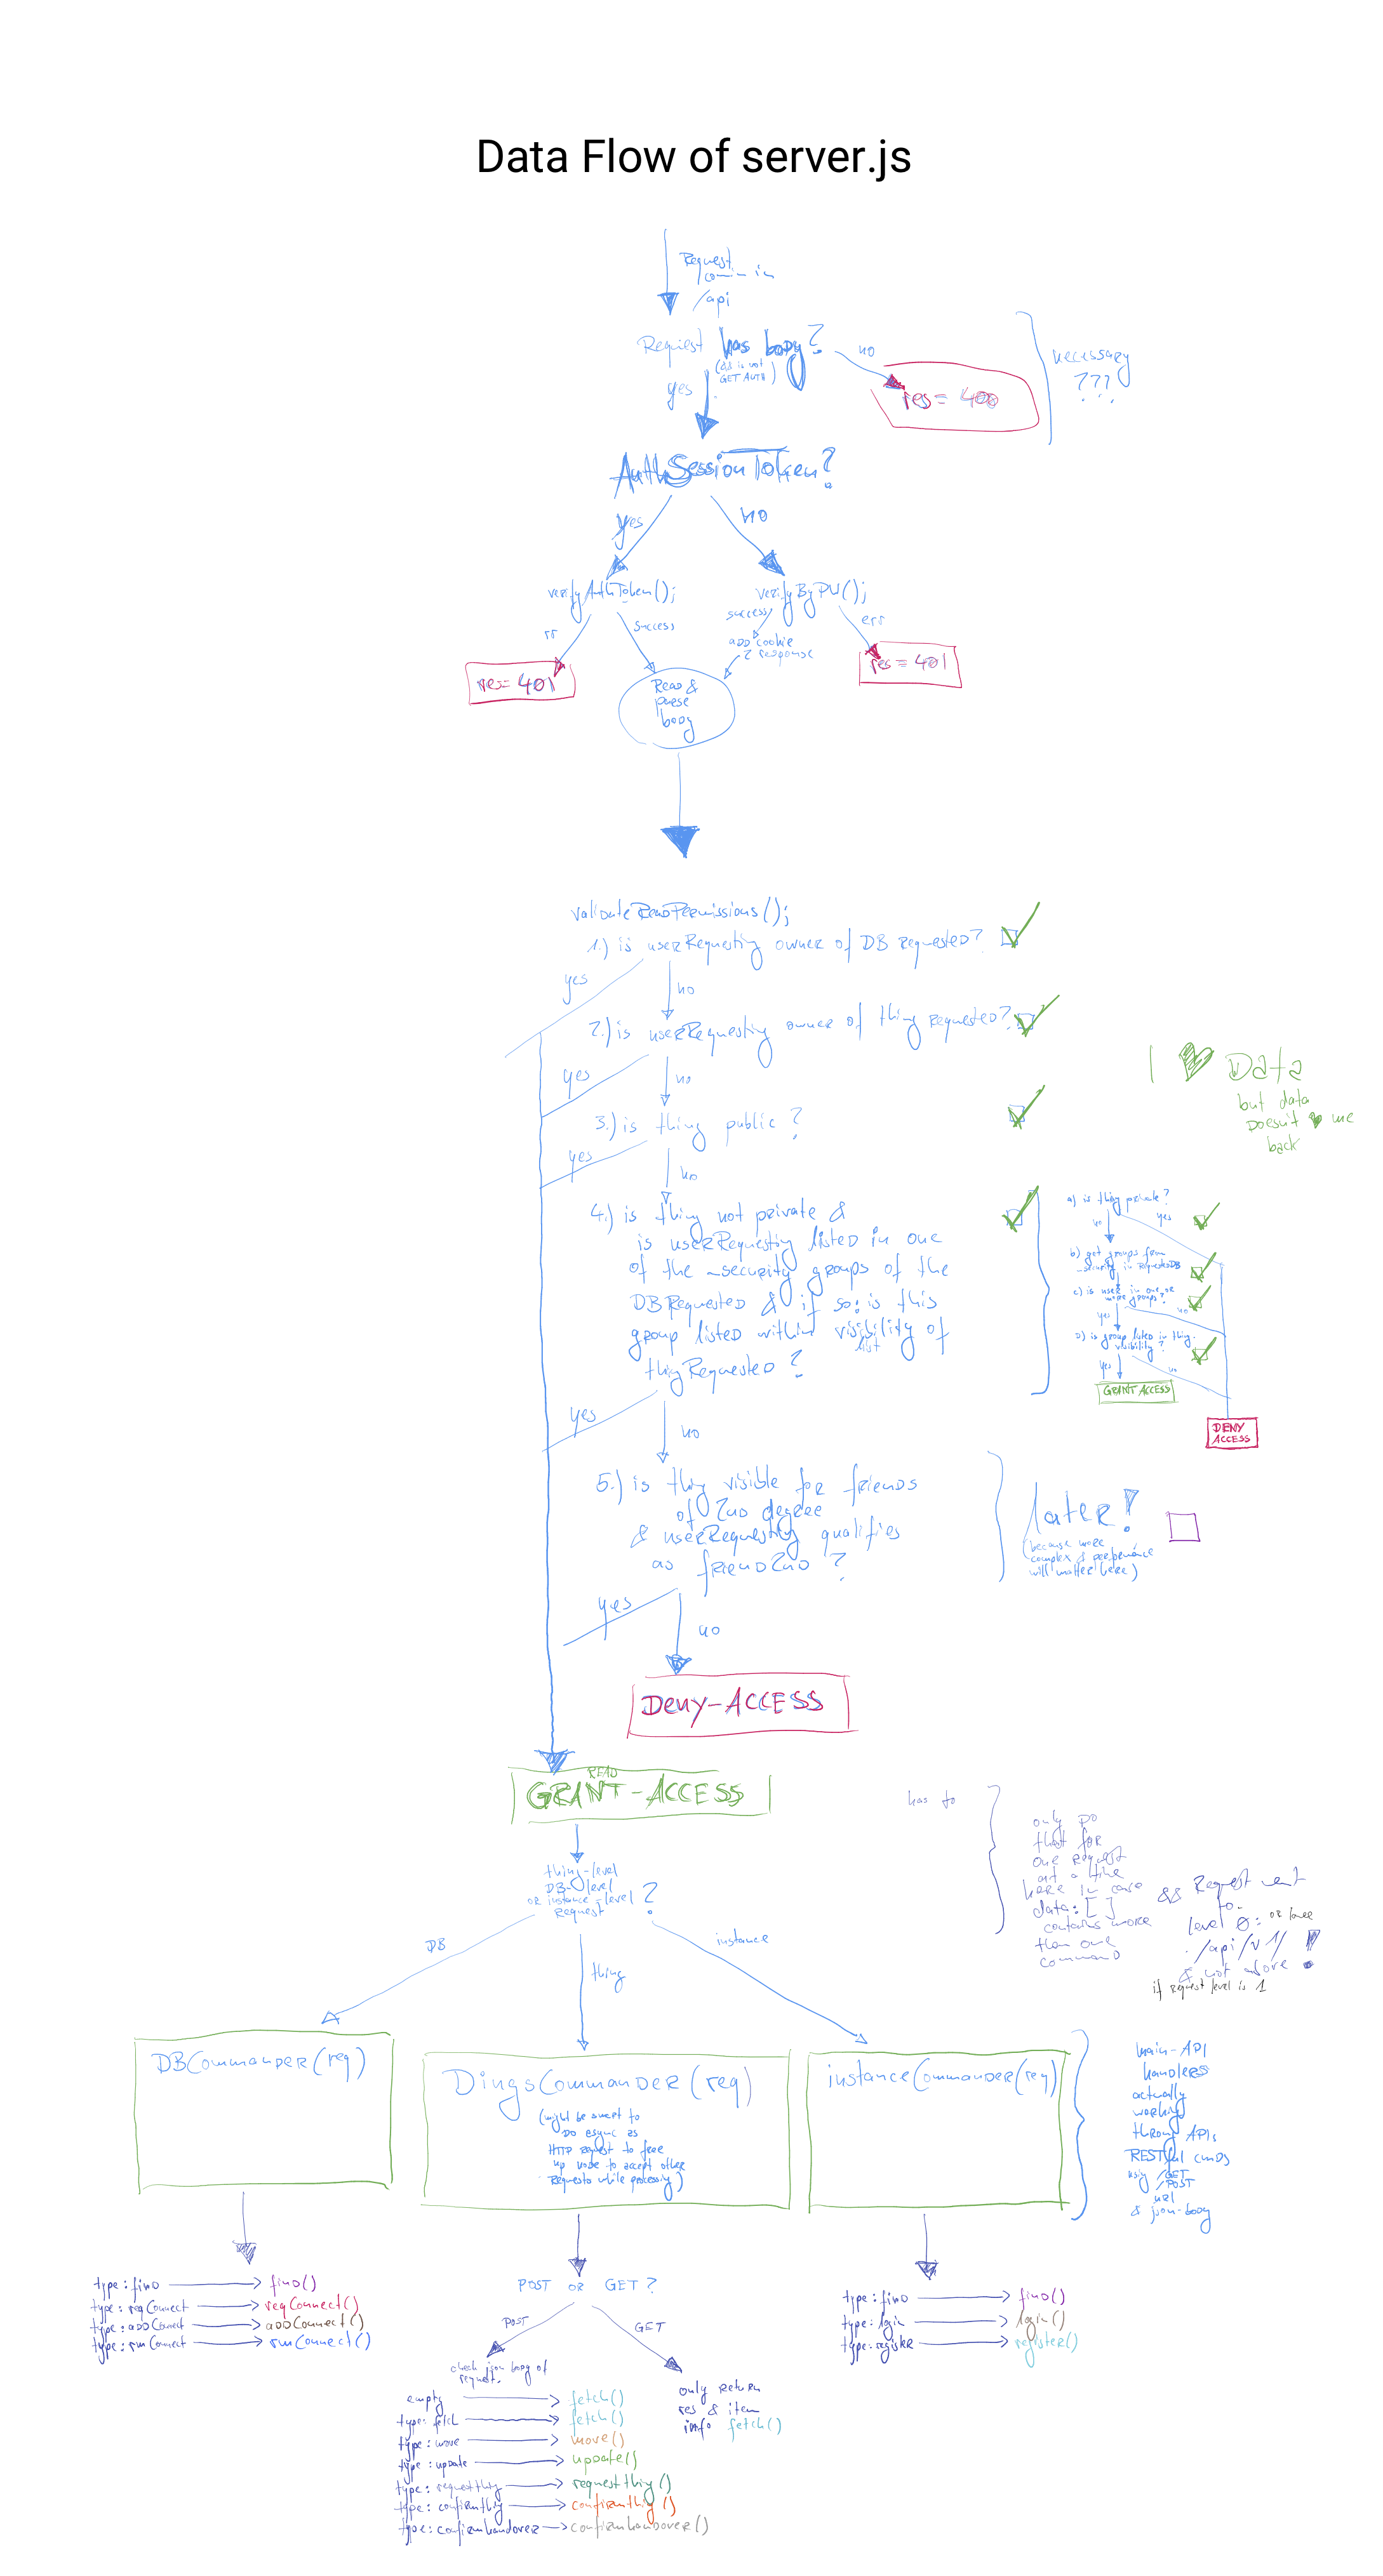 Data Flow of server.js
Request
comin in
/api
Request has body?
(&& is not
GET AUTH)
no
yes
res = 400
necessary
???
AuthSessionToken?
yes
no
verifyAuthToken();
verifyByPW();
rr
success
success
err
add cookie
2 response
res = 401
res = 401
Read &
parse
body
validateReadPermissions();
1.) is userRequesting owner of DB requested?
yes
no
2.) is userRequesting owner of thing requested?
yes
no
3.) is thing public?
yes
no
I ♥ Data
but data
doesn't ♥ me
back
4.) is thing not private &
is userRequesting listed in one
of the _security groups of the
DBRequested & if so: is this
group listed within visibility of
list
thingRequested?
yes
no
a) is thing private?
no
yes
b) get groups from
_security in RequestedDB
c) is user in one or
more groups?
yes
no
d) is group listed in thing.
visibility?
yes
no
GRANT ACCESS
DENY
ACCESS
5.) is thing visible for friends
of 2nd degree
& userRequesting qualifies
as friend2nd?
later!
(because more
complex & performance
will matter here)
yes
no
Deny-ACCESS
READ
GRANT-ACCESS
thing-level
DB-level
or instance-level
request
?
has to
only do
that for
one request
at a time
here in case
data: []
contains more
than one
command
&& Request sent
to
level 0: or lower
/api/v1/ !
& not above
if request level is 1
DB
thing
instance
DBCommander(req)
DingsCommander(req)
(might be smart to
do async as
HTTP request to free
up node to accept other
requests while processing)
instanceCommander(req)
main-API
handlers
actually
working
through APIs
RESTful cmds
using /GET
/POST
url
& json-body
type: find → find()
type: reqConnect → reqConnect()
type: addConnect → addConnect()
type: rmConnect → rmConnect()
POST or GET?
POST
GET
check json body of
request.
empty → fetch()
type: fetch → fetch()
type: move → move()
type: update → update()
type: requestthing → requestthing()
type: confirmthing → confirmthing()
type: confirmhandover → confirmhandover()
only return
res & item
info fetch()
type: find → find()
type: login → login()
type: register → register()